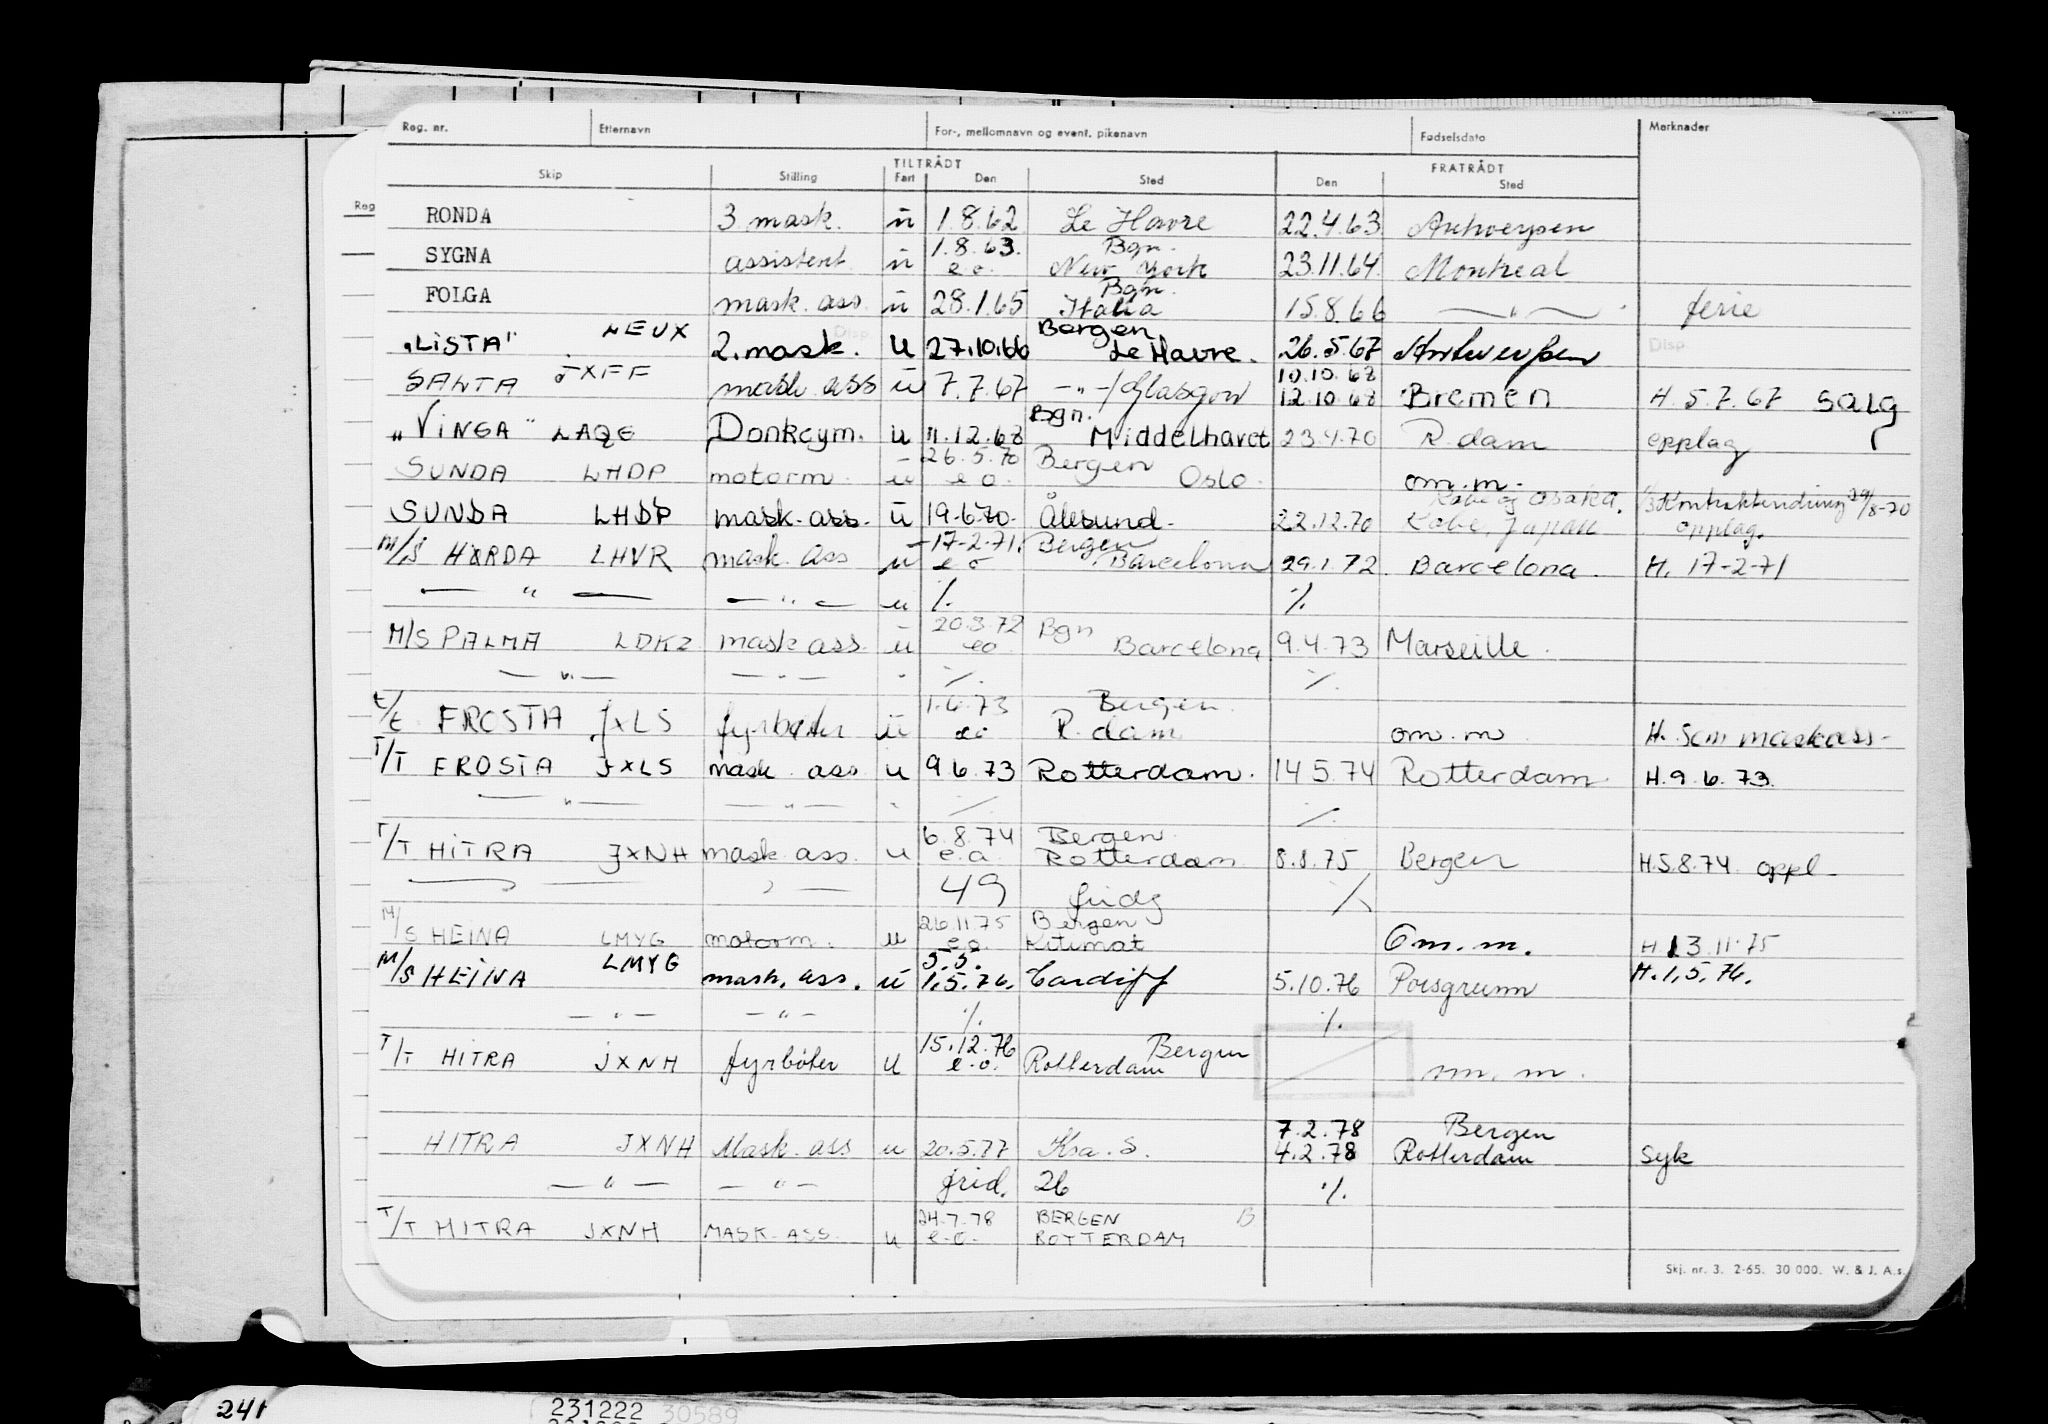 Reg. nr. Etternavn For-, mellomnavn og event. pikenavn Fødselsdato Merknader
TILTRÅDT FRATRÅDT
Skip Stilling Fart Den Sted Den Sted
Reg
RONDA 3 mask. u 1.8.62 Le Havre 22.4.63 Antwerpen
1.8.63. Bgn.
SYGNA assistent u e.o. New York 23.11.64. Montreal
Bgn.
FOLGA mask. ass. u 28.1.65 Italia 15.8.66 — " — ferie
Bergen
"LISTA" LEUX 2. mask. u 27.10.66 Le Havre. 26.5.67 Antwerpen
Disp.
10.10.68
SANTA JXFF mask ass u 7.7.67 -"-/Glasgow 12.10.68 Bremen H. 5.7.67 salg
Bgn.
"VINGA" LAQE Donkeym. u 11.12.68 Middelhavet 23.4.70 R.dam opplag
26.5.70 Bergen
SUNDA LHDP motorm. u e o. Oslo. om.m.
Kobe og Osaka. Kontraktendring 29/8-70
SUNDA LHDP mask-ass. u 19.6.70. Ålesund. 22.12.70 Kobe, Japan opplag.
17-2-71. Bergen
M/S HORDA LHVR mask. ass u e o Barcelona 29.1.72. Barcelona. H. 17-2-71
— " — — " — u %. %.
20.3.72 Bgn
M/S PALMA LDKZ mask ass. u eo Barcelona 9.4.73 Marseille.
— " — — " — " %. %.
1.6.73 Bergen.
t/t FROSTA JXLS fyrbøter u eo R.dam om.m H. som maskass-
T/T FROSTA JXLS mask. ass u 9.6.73 Rotterdam. 14.5.74 Rotterdam. H.9.6.73.
— " — — " — " % %.
6.8.74 Bergen
T/T HITRA JXNH mask. ass. u e.o. Rotterdam 8.8.75 Bergen H.5.8.74. oppl-
— " — 49 fridg %
26.11.75 Bergen
M/S HEINA LMYG motorm. u e.o. Kitimat Om.m. H.13.11.75
5.5.
M/S HEINA LMYG mask. ass. u 1.5.76. Cardiff 5.10.76 Porsgrunn H.1.5.76.
— " — — " — %. %.
15.12.76 Bergen
T/T HITRA JXNH fyrbøter u e.o. Rotterdam om. m.
7.2.78 Bergen
HITRA JXNH Mask. ass u 20.5.77 Kra. S. 4.2.78 Rotterdam syk
— " — — " — frid. 26 %.
24.7.78 BERGEN B
T/T HITRA JXNH MASK-ASS. u e.o. ROTTERDAM
Skj. nr. 3. 2-65. 30 000. W. & J. A.s.
241 231222 30589